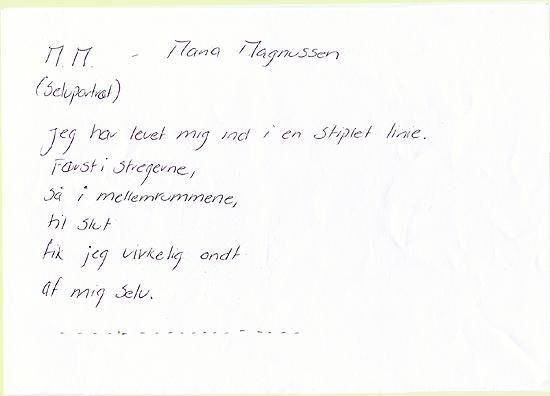 M.M. - Mana Magnussen
(Selvportræt)
Jeg har levet mig ind i en stiplet linie.
Først i stregerne,
så i mellemrummene,
til slut
fik jeg virkelig ondt
af mig selv.